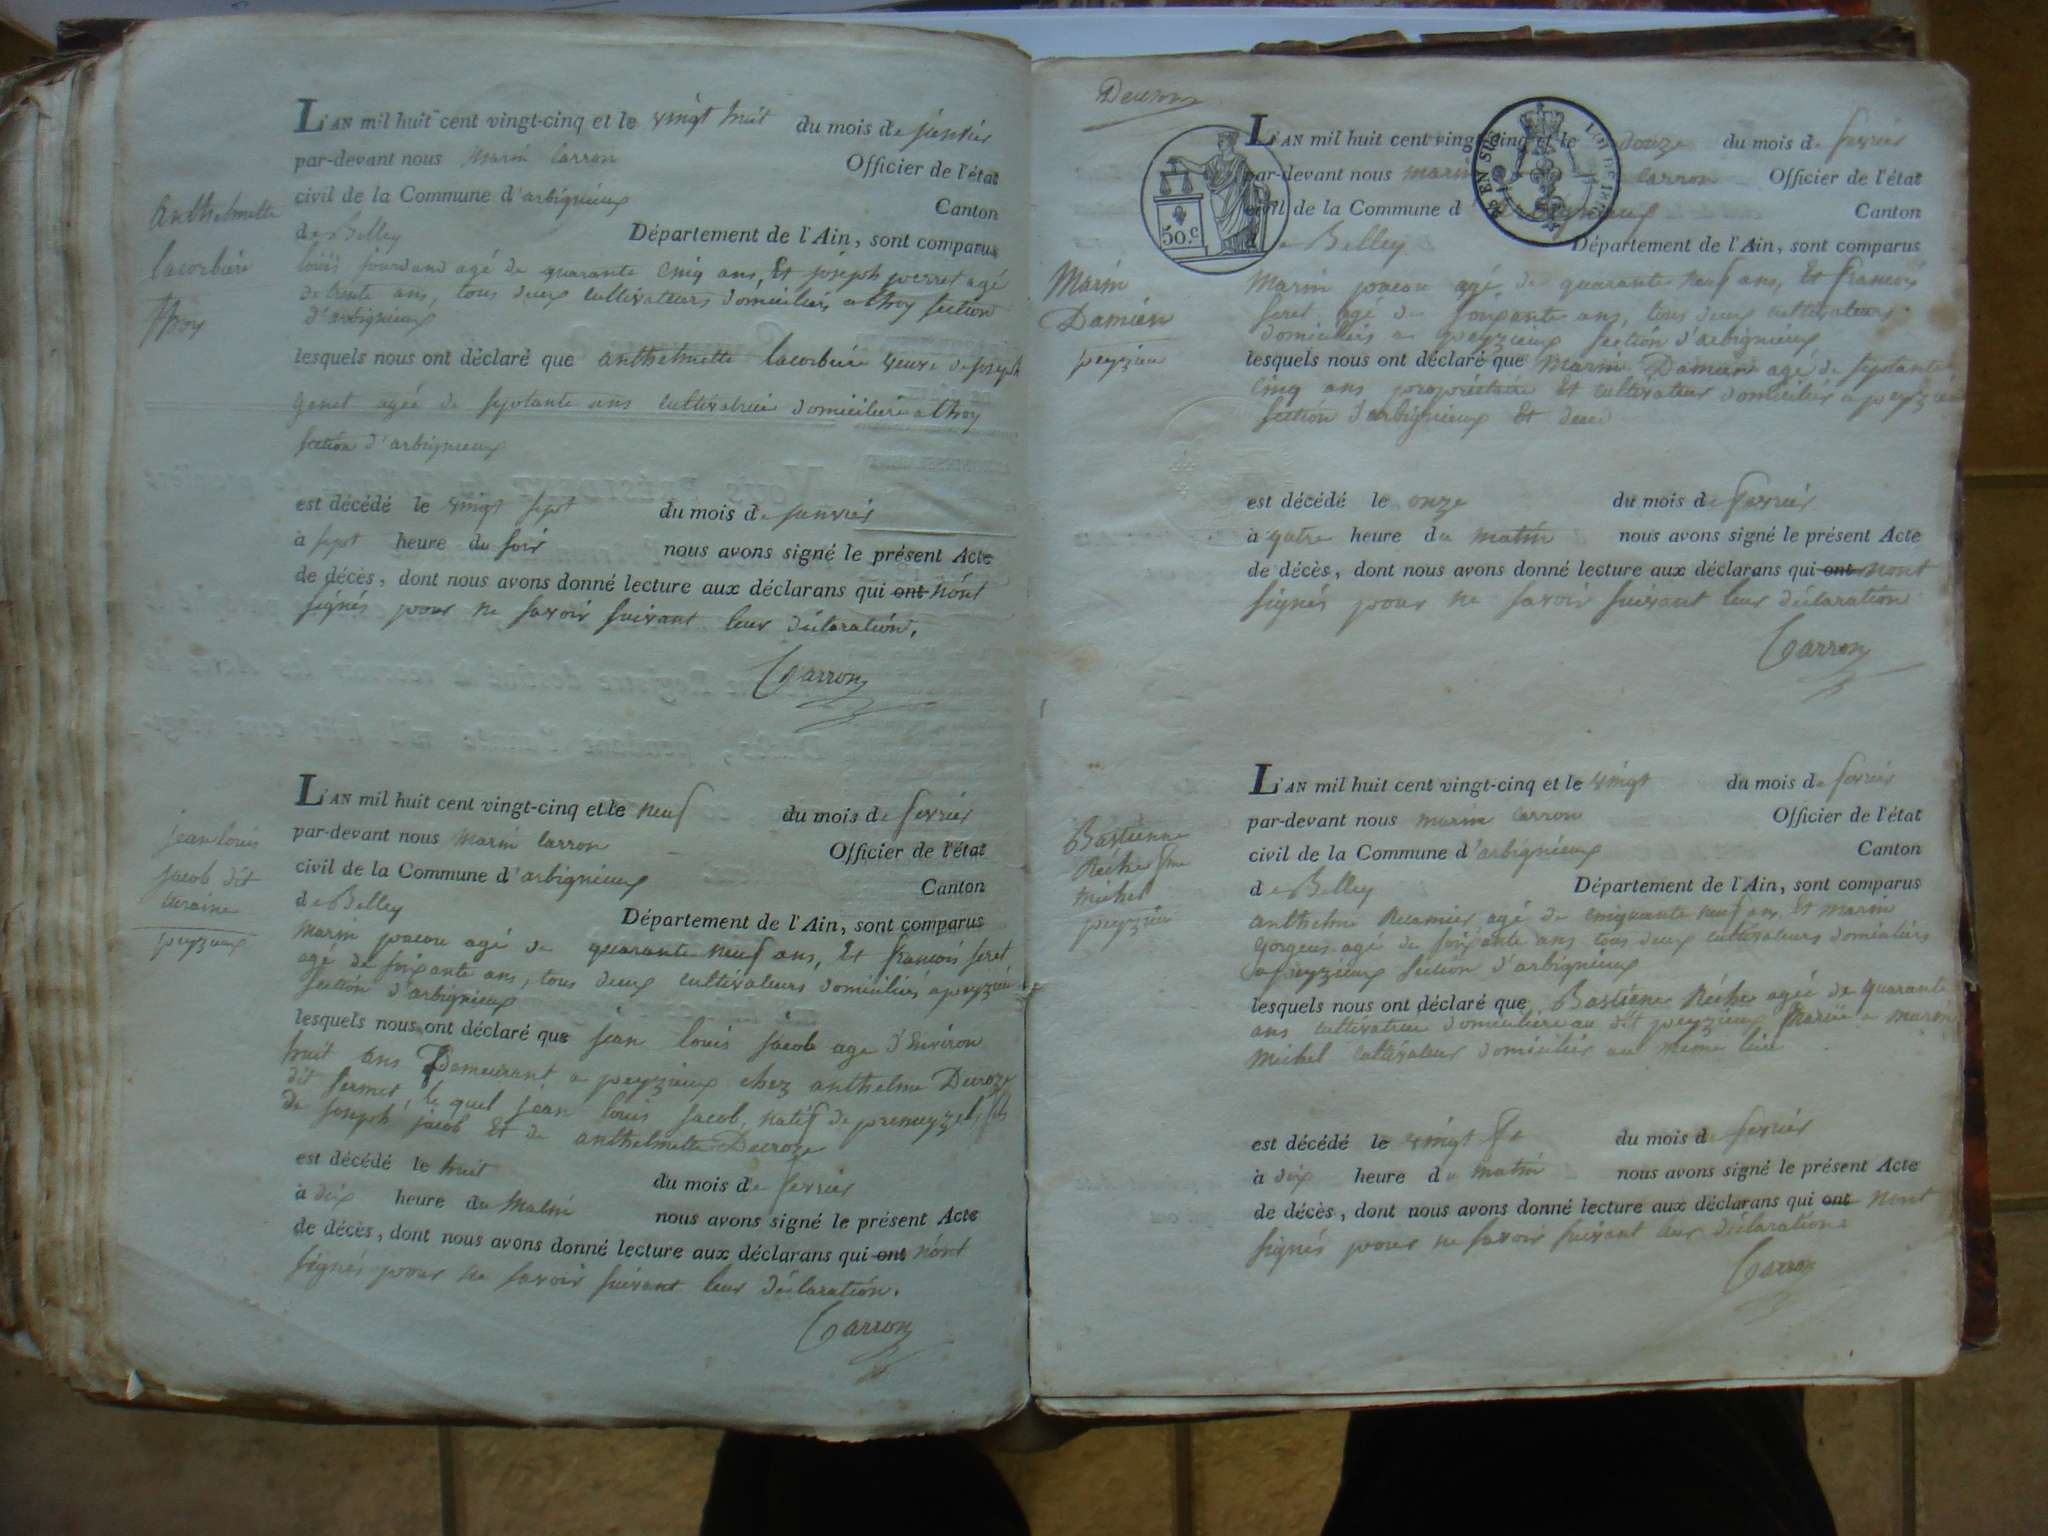 L'AN mil huit cent vingt-cinq et le vingt huit du mois de janvier
par-devant nous marin Carron Officier de l'état
civil de la Commune d'arbignieux Canton
de Belley Département de l'Ain, sont comparus
louis jourdand agé de quarante cinq ans, Et joseph perret agé
de trente ans, tous deux cultivateurs domiciliés a thoy section
d'arbignieux
Anthelmette
lacorbiere
thoy
lesquels nous ont déclaré que anthelmette lacorbiere veuve de joseph
genet agée de septante ans cultivatrice domiciliée a thoy
section d'arbignieux
est décédé le vingt sept du mois de janvier
à sept heure du soir nous avons signé le présent Acte
de décès, dont nous avons donné lecture aux déclarans qui ont n'ont
signés pour ne savoir suivant leur déclaration.
Carron
L'AN mil huit cent vingt-cinq et le neuf du mois de fevrier
par-devant nous marin Carron Officier de l'état
civil de la Commune d'arbignieux Canton
de Belley Département de l'Ain, sont comparus
marin pocou agé de quarante neuf ans, Et francois seret
agé de soixante ans, tous deux cultivateurs domiciliés a peyzieux
section d'arbignieux
jean louis
jacob dit
peyzieux
lesquels nous ont déclaré que jean louis jacob age d'environ
huit ans Demeurant a peyzieux chez anthelme Decroze
dit fermet, le quel jean louis jacob, natif de premeyzel, fils
de joseph jacob Et de anthelmette Decroze
est décédé le huit du mois de fevrier
à dix heure du matin nous avons signé le présent Acte
de décès, dont nous avons donné lecture aux déclarans qui ont n'ont
signés pour ne savoir suivant leur déclaration.
Carron
50.c
EN SUS
LOI DE
L'AN mil huit cent vingt-cinq et le douze du mois de fevrier
par-devant nous marin Carron Officier de l'état
civil de la Commune d'arbignieux Canton
de Belley Département de l'Ain, sont comparus
marin pocou agé de quarante neuf ans, Et francois
seret agé de soixante ans, tous deux cultivateurs
domiciliés a peyzieux section d'arbignieux
Marin
Damien
peyzieu
lesquels nous ont déclaré que Marin Damien agé de septante
cinq ans propriétaire Et cultivateur domicilié a peyzieu
section d'arbignieux Et
est décédé le onze du mois de fevrier
à quatre heure du matin nous avons signé le présent Acte
de décès, dont nous avons donné lecture aux déclarans qui ont n'ont
signés pour ne savoir suivant leur déclaration
Carron
L'AN mil huit cent vingt-cinq et le vingt du mois de fevrier
par-devant nous marin Carron Officier de l'état
civil de la Commune d'arbignieux Canton
de Belley Département de l'Ain, sont comparus
anthelme Recamier agé de cinquante neuf ans, Et marin
Gorgeus agé de soixante ans tous deux cultivateurs domiciliés
a peyzieux section d'arbignieux
Bastienne
Reche fme
michel
peyzieu
lesquels nous ont déclaré que Bastiene Reche agée de quarante
ans cultivatrice domiciliée au dit peyzieux Mariée a marin
michel cultivateur domicilié au meme lieu
est décédé le vingt du mois de fevrier
à dix heure du matin nous avons signé le présent Acte
de décès, dont nous avons donné lecture aux déclarans qui ont n'ont
signés pour ne savoir suivant leur déclaration
Carron